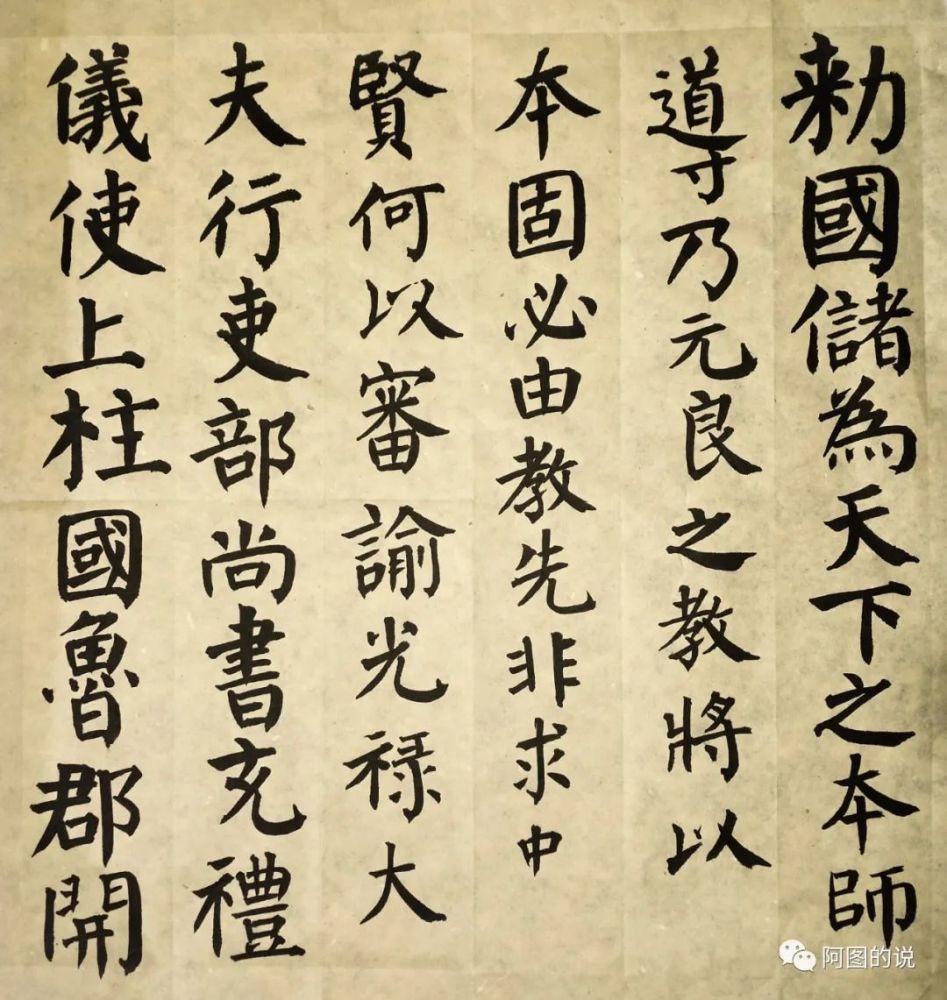 勑國儲為天下之本師
導乃元良之教將以
本固必由教先非求中
賢何以審諭光禄大
夫行吏部尚書充禮
儀使上柱國魯郡開
阿图的说